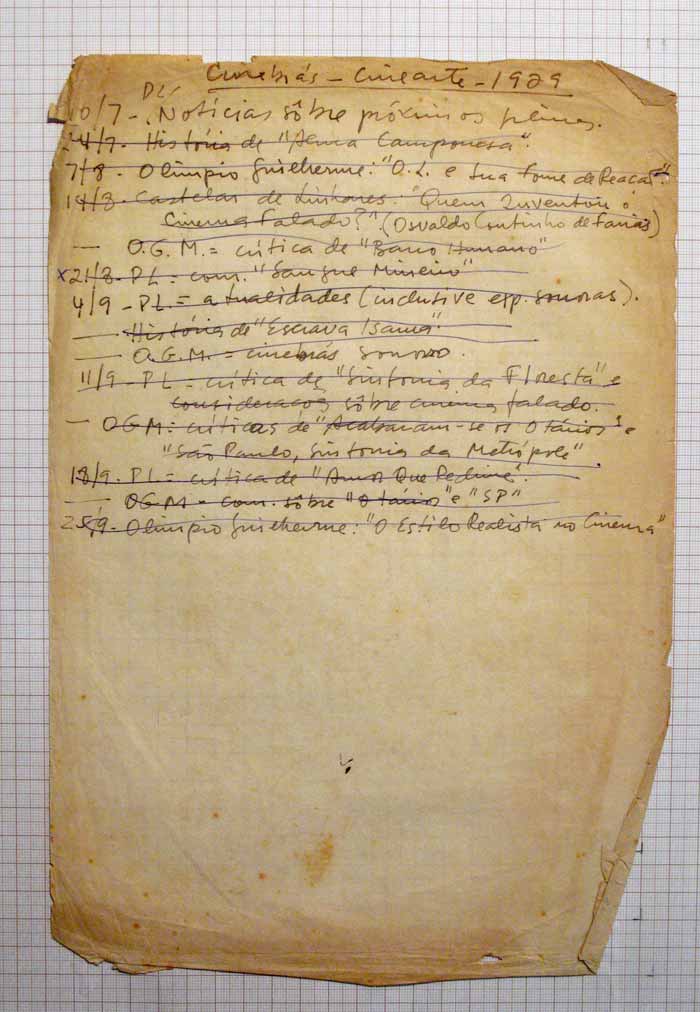 Cinebrás - Cinearte - 1929
10/7 - Notícias sôbre próximos filmes.
24/7 - História de "Alma Camponesa".
7/8 - Olimpio Guilherme: "O.G. e sua Fome de Reação".
14/8 - Castelar de Linhares. "Quem Inventou o
Cinema Falado?" (Osvaldo Coutinho de Farias)
— O.G.M. = crítica de "Barro Humano"
x 21/8 - PL = com. "Sangue Mineiro"
4/9 - PL = atualidades (inclusive esp. sonoras).
— História de "Escrava Isaura"
— O.G.M. = cinebrás sonoro.
11/9 - PL = crítica de "Sinfonia da Floresta" e
considerações sôbre cinema falado.
— OGM: críticas de "Acabaram-se os Otários" e
"São Paulo, Sinfonia da Metrópole".
18/9 - PL = crítica de "Amor Que Redime".
— OGM - com. sôbre "Otários" e "SP"
25/9 - Olimpio Guilherme: "O Estilo Realista no Cinema"